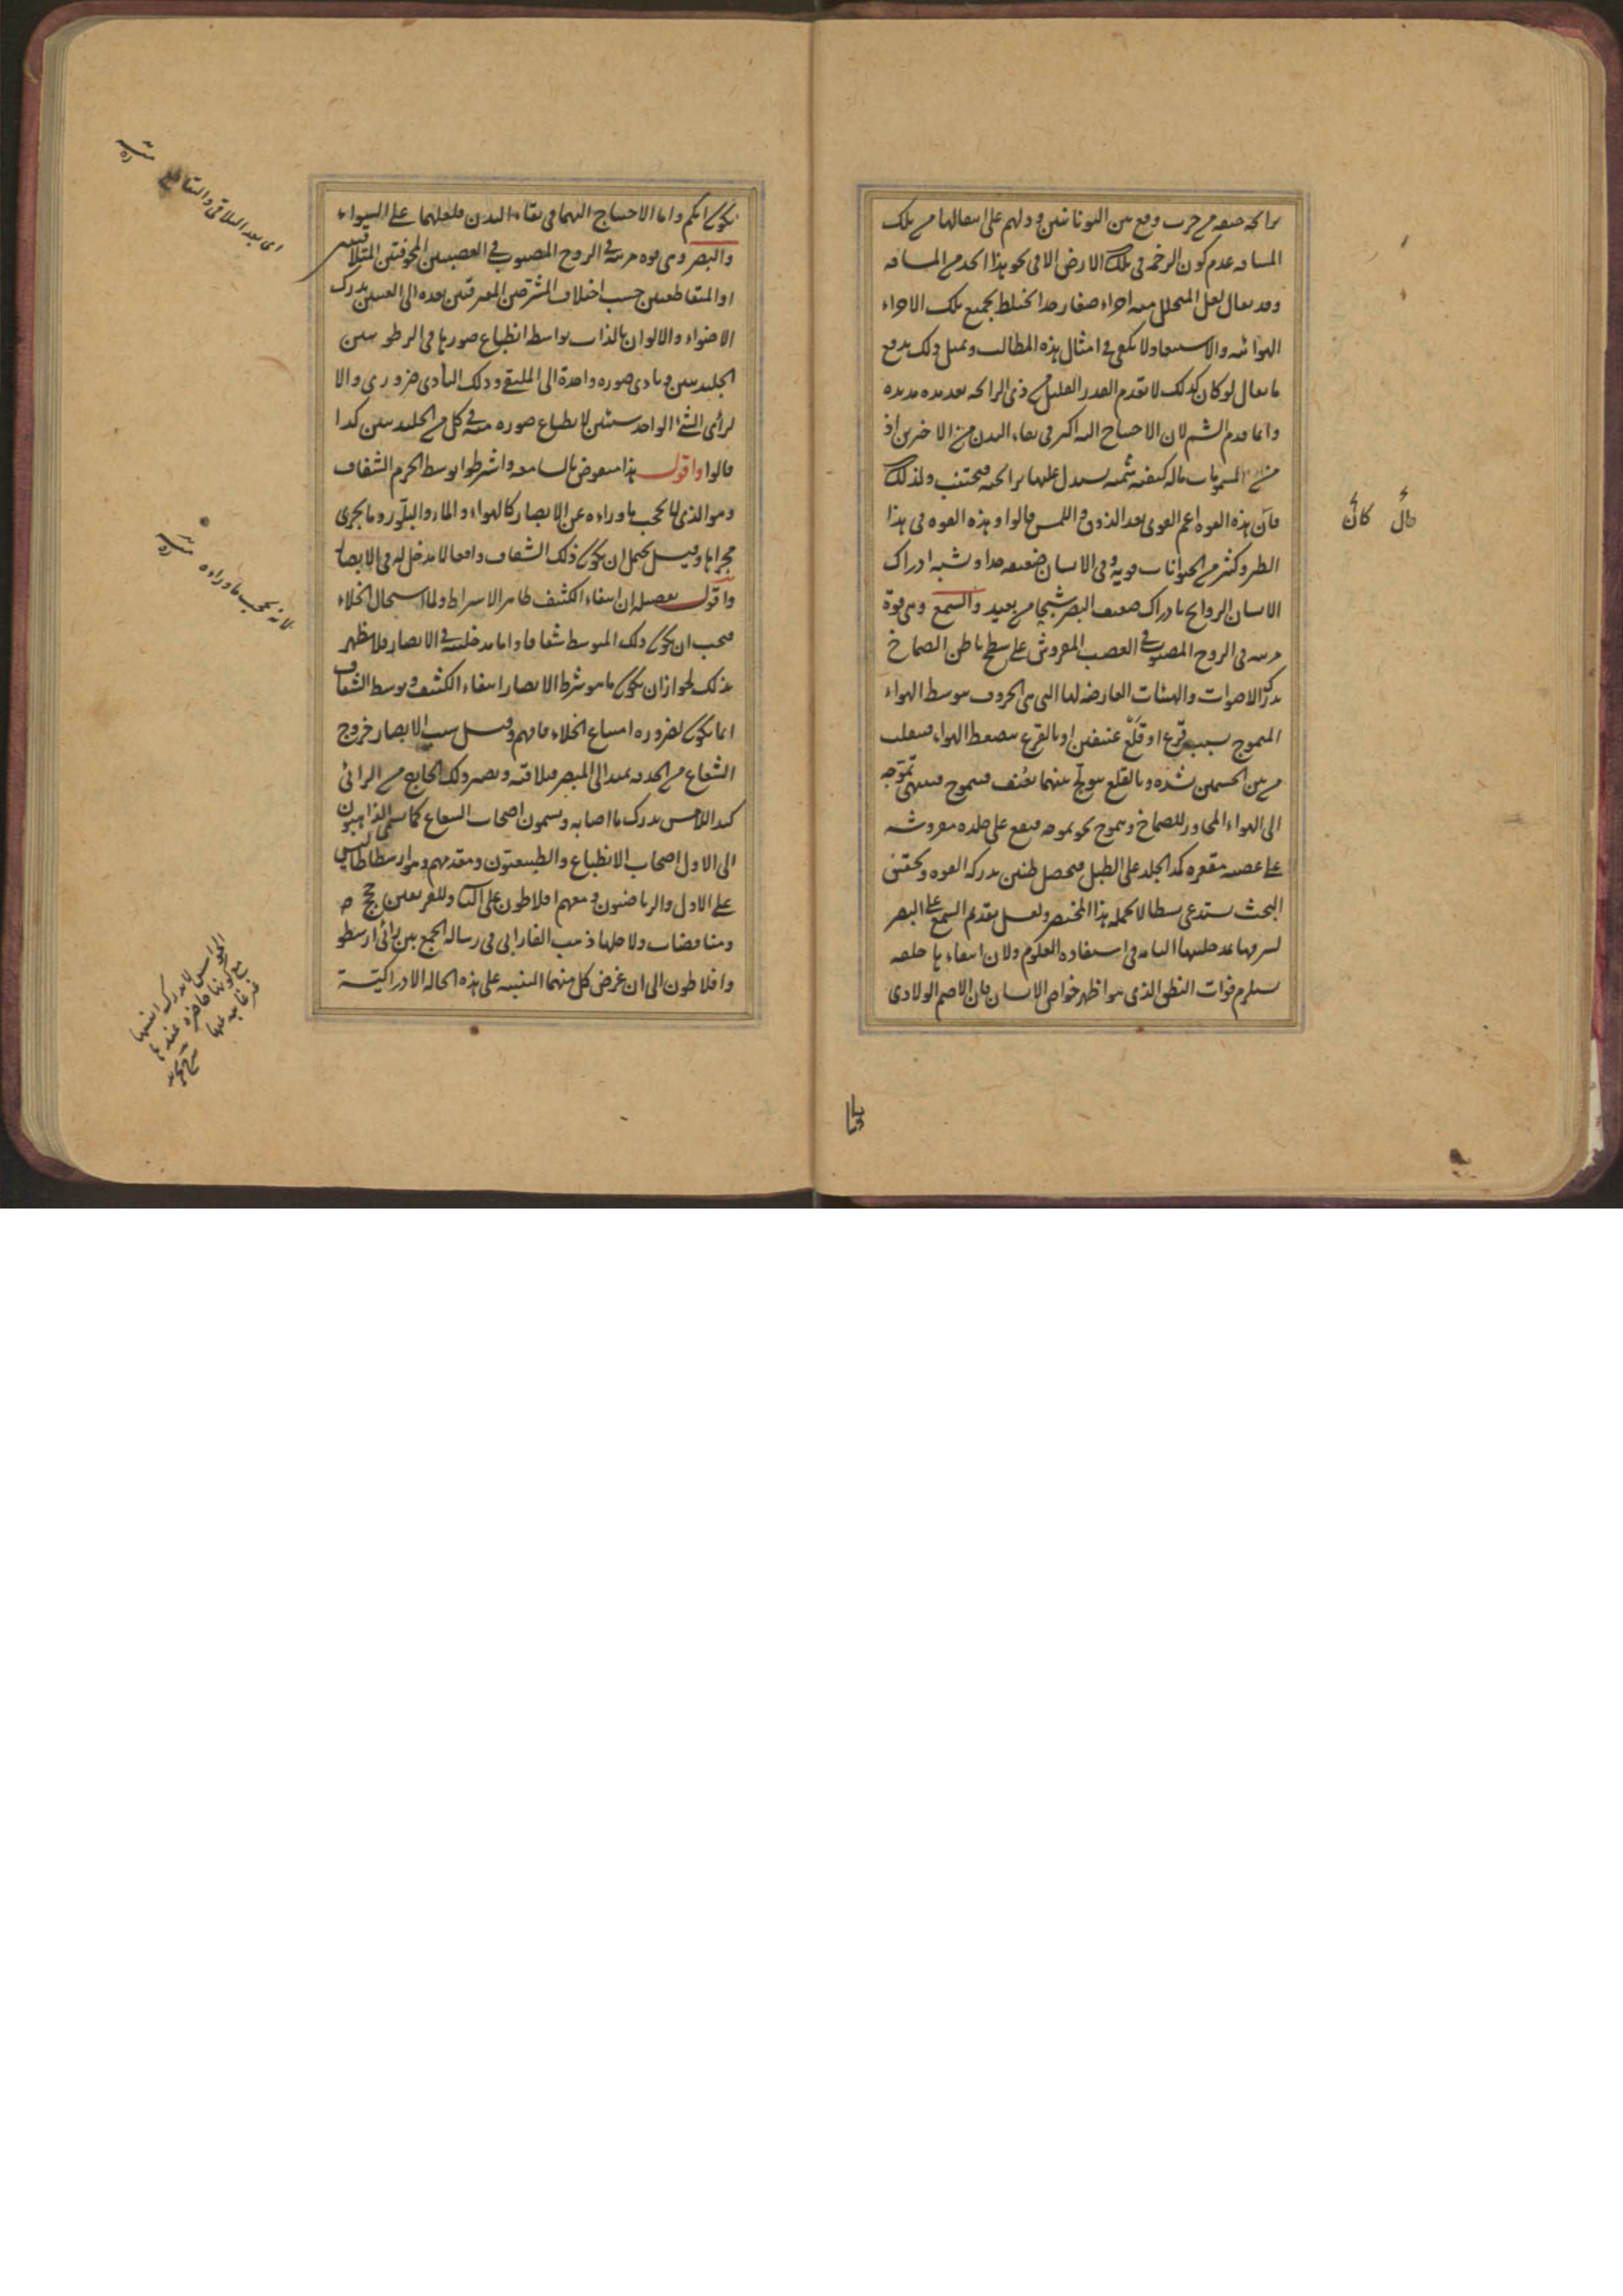 برائحة جيفة من حرب وقع بين اليونانيين ودلهم على انتقالها من تلك
المسافة عدم كون الرخمة في تلك الارض الا في نحو هذا الحد من المسافة
وقد يقال لعل المتحلل منه اجزاء صغار جدا تختلط بجميع تلك الاجزاء
الهوائية والاستبعاد لا يكفي في امثال هذه المطالب وبمثل ذلك يدفع
ما يقال لو كان كذلك لانعدم القدر القليل من ذي الرائحة بعد مدة مديدة
وانما قدم الشم لان الاحتياج اليه اكثر في بقاء البدن من الاخرين اذ
من المسمومات ماله كيفية شمية يستدل عليها برائحته فيجتنب ولذلك
كان هذه القوة اعم القوى بعد الذوق واللمس قالوا وهذه القوة في هذا
الطير وكثير من الحيوانات قوية وفي الانسان ضعيفة جدا ويشبه ادراك
الانسان الروائح بادراك ضعيف البصر شبحا من بعيد والسمع وهي قوة
مرتبة في الروح المصبوب في العصب المفروش على سطح باطن الصماخ
يدرك الاصوات والهيئات العارضة لها التي هي الحروف بتوسط الهواء
المتموج بسبب قرع او قلع عنيفين او بالقرع ينضغط الهواء فينفلت
من بين الجسمين بشدة وبالقلع يتولج بينهما بعنف فيتموج فينتهي تموجه
الى الهواء المجاور للصماخ ويتموج نحو تموجه فيقع على جلدة مفروشة
على عصبة مقعرة كمد الجلد على الطبل فيحصل طنين يدركه القوة وتحقيق
البحث يستدعي بسطا لا يحمله هذا المختصر ولعل تقديم السمع على البصر
لشرفها بمدخليتها التامة في استفادة العلوم ولان انتفاءها خلقة
يستلزم فوات النطق الذي هو اظهر خواص الانسان فان الاصم الولادي
قال كان
يكون ابكم واما الاحتياج اليهما في بقاء البدن فلعلهما على السواء
والبصر وهي قوة مرتبة في الروح المصبوب في العصبتين المجوفتين المتلاقيتين
او المتقاطعتين حسب اختلاف المشرحين المفترقتين بعده الى العينين يدرك
الاضواء والالوان بالذات بواسطة انطباع صورها في الرطوبتين
الجليديتين وتأدي صورة واحدة الى الملتقى وذلك التأدي ضروري والا
لرأى الشئ الواحد شيئين لانطباع صورة منه في كل من الجليديتين كذا
قالوا واقول هذا منقوض بالسامعة واشترطوا توسط الجرم الشفاف
وهو الذي لا يحجب ما وراءه عن الابصار كالهواء والماء والبلور وما يجري
مجراها وقيل يحتمل ان يكون ذلك الشفاف واقعا لا مدخل له في الابصار
واقول تفصيله ان انتفاء الكثيف ظاهر الاشتراط ولما استحال الخلاء
فيجب ان يكون ذلك المتوسط شفافا واما مدخليته في الابصار فلا يظهر
بذلك لجواز ان يكون ما هو شرط الابصار انتفاء الكثيف وتوسط الشفاف
انما يكون لضرورة امتناع الخلاء فافهم وقيل سبب الابصار خروج
الشعاع من الحدقة يمتد الى المبصر فيلاقيه ويصير ذلك الخارج من الرائي
كيد اللامس يدرك ما اصابه ويسمون اصحاب الشعاع كما يسمى الذاهبون
الى الاول اصحاب الانطباع والطبيعيون ومقدمهم وهو ارسطاطاليس
على الاول والرياضيون ومعهم افلاطون على الثاني وللفريقين حجج
ومناقضات ولاجلها ذهب الفارابي في رسالة الجمع بين رائي ارسطو
وافلاطون الى ان غرض كل منهما التنبيه على هذه الحالة الادراكية
اي بعد التلاقي والتقاطع
لانه يحجب ما وراءه
الحواس لا يدرك انفسها
مع كونها حاضرة عندها
غير غائبة عنها